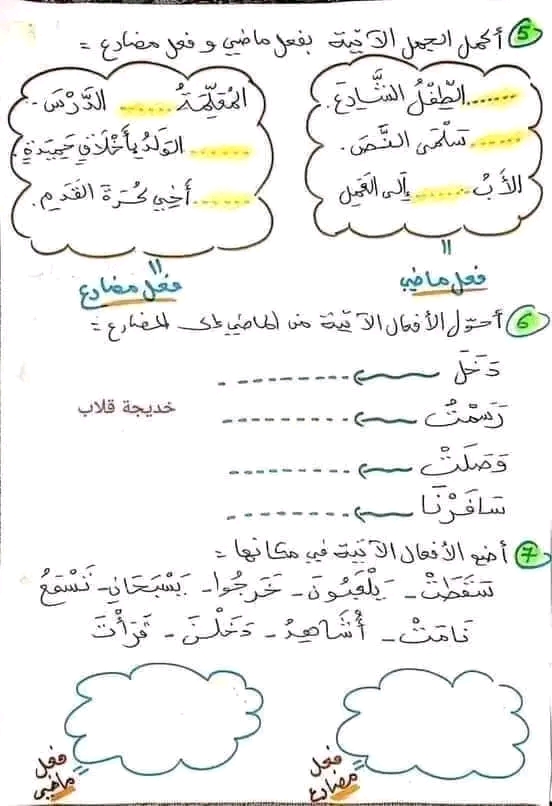 5 أكمل الجمل الآتية بفعل ماضي و فعل مضارع =
....... الطِّفْلُ الشَّارِعَ.
....... سَلْمَى النَّصَّ.
الأَبُ ....... إِلَى العَمَلِ
فعل ماضي
المُعَلِّمَةُ ....... الدَّرْسَ.
....... الوَلَدُ بِأَخْلَاقٍ حَمِيدَةٍ.
....... أَخِي كُرَةَ القَدَمِ.
فعل مضارع
6 أحوّل الأفعال الآتية من الماضي إلى المضارع =
دَخَلَ ..........
رَسَمْتُ ..........
خديجة قلاب
وَصَلَتْ ..........
سَافَرْنَا ..........
7 أضع الأفعال الآتية في مكانها =
سَقَطَتْ - يَلْعَبُونَ - خَرَجُوا - يَسْبَحَانِ - نَسْمَعُ
نَامَتْ - أُشَاهِدُ - دَخَلْنَ - قَرَأْتَ
فعل مضارع
فعل ماضي